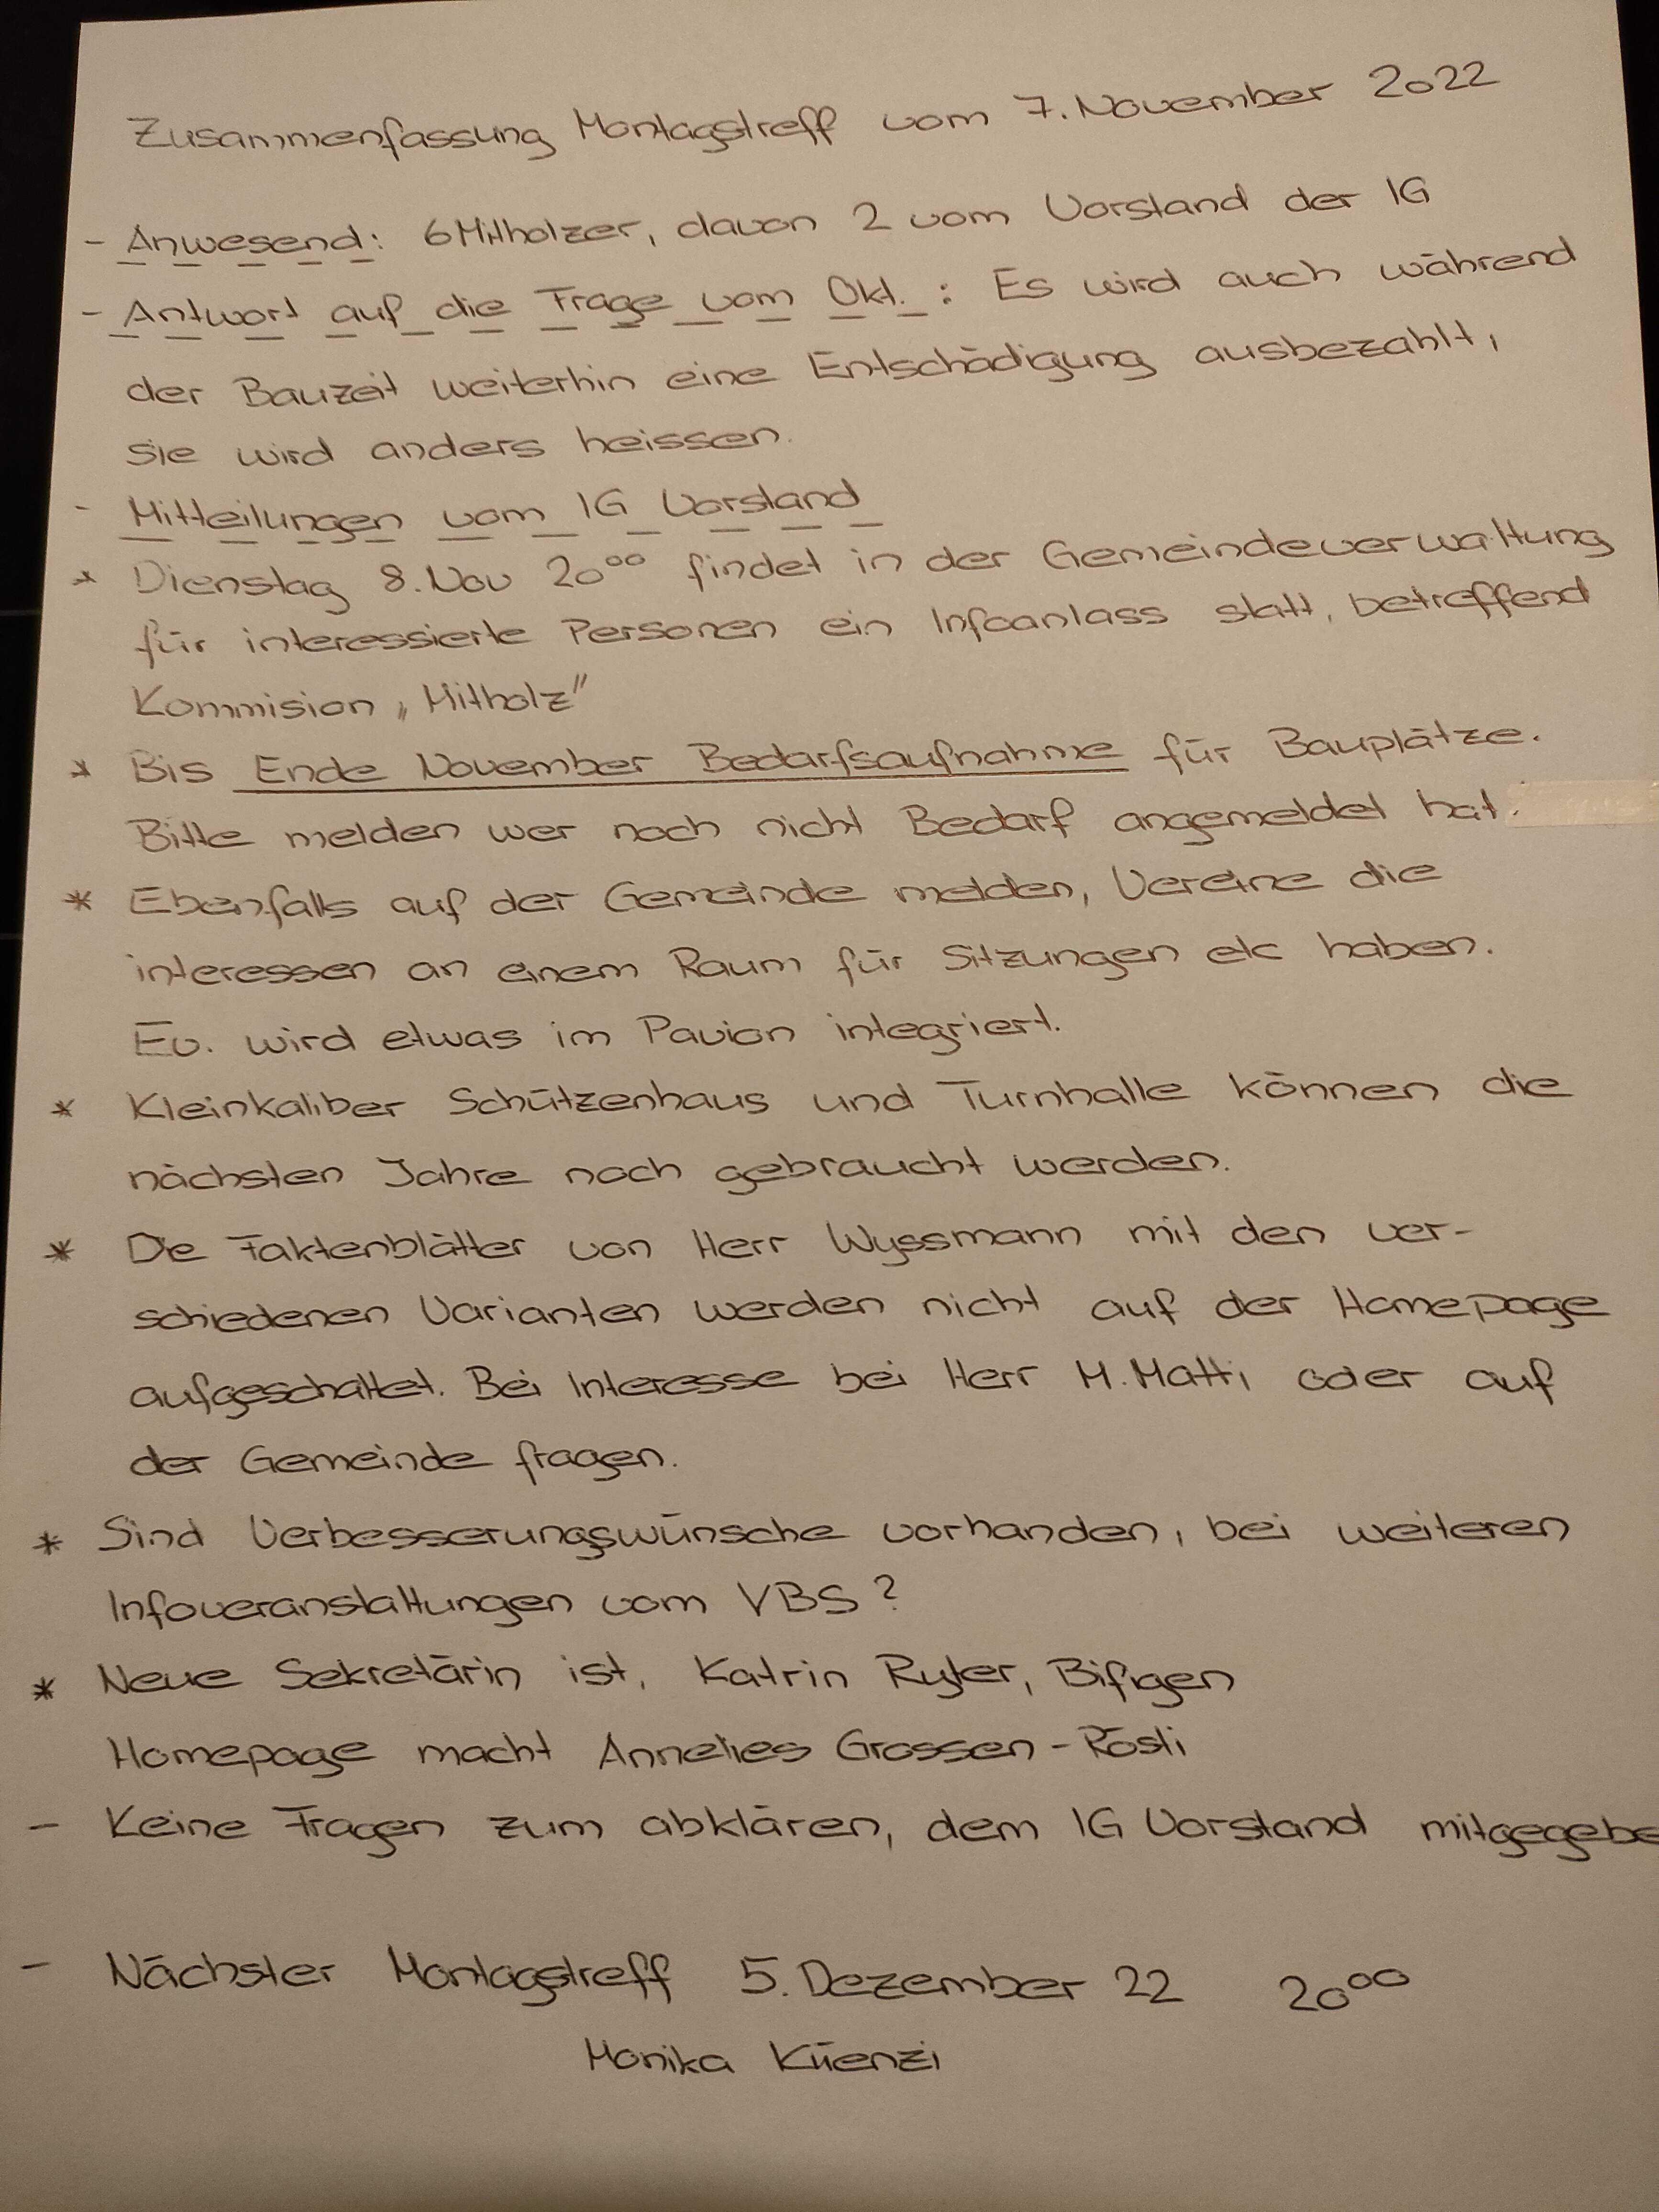 Zusammenfassung Montagstreff vom 7. November 2022
- Anwesend: 6 Mitholzer, davon 2 vom Vorstand der IG
- Antwort auf die Frage vom Okt. : Es wird auch während
der Bauzeit weiterhin eine Entschädigung ausbezahlt,
sie wird anders heissen.
- Mitteilungen vom IG Vorstand
* Dienstag 8. Nov 20⁰⁰ findet in der Gemeindeverwaltung
für interessierte Personen ein Infoanlass statt, betreffend
Kommision „Mitholz"
* Bis Ende November Bedarfsaufnahme für Bauplätze.
Bitte melden wer noch nicht Bedarf angemeldet hat.
* Ebenfalls auf der Gemeinde melden, Vereine die
interessen an einem Raum für Sitzungen etc haben.
Ev. wird etwas im Pavion integriert.
* Kleinkaliber Schützenhaus und Turnhalle können die
nächsten Jahre noch gebraucht werden.
* Die Faktenblätter von Herr Wyssmann mit den ver-
schiedenen Varianten werden nicht auf der Homepage
aufgeschaltet. Bei Interesse bei Herr M. Matti oder auf
der Gemeinde fragen.
* Sind Verbesserungswünsche vorhanden, bei weiteren
Infoveranstaltungen vom VBS?
* Neue Sekretärin ist, Katrin Ryter, Bifigen
Homepage macht Annelies Grossen - Rösti
- Keine Fragen zum abklären, dem IG Vorstand mitgegebe
- Nächster Montagstreff 5. Dezember 22 20⁰⁰
Monika Küenzi